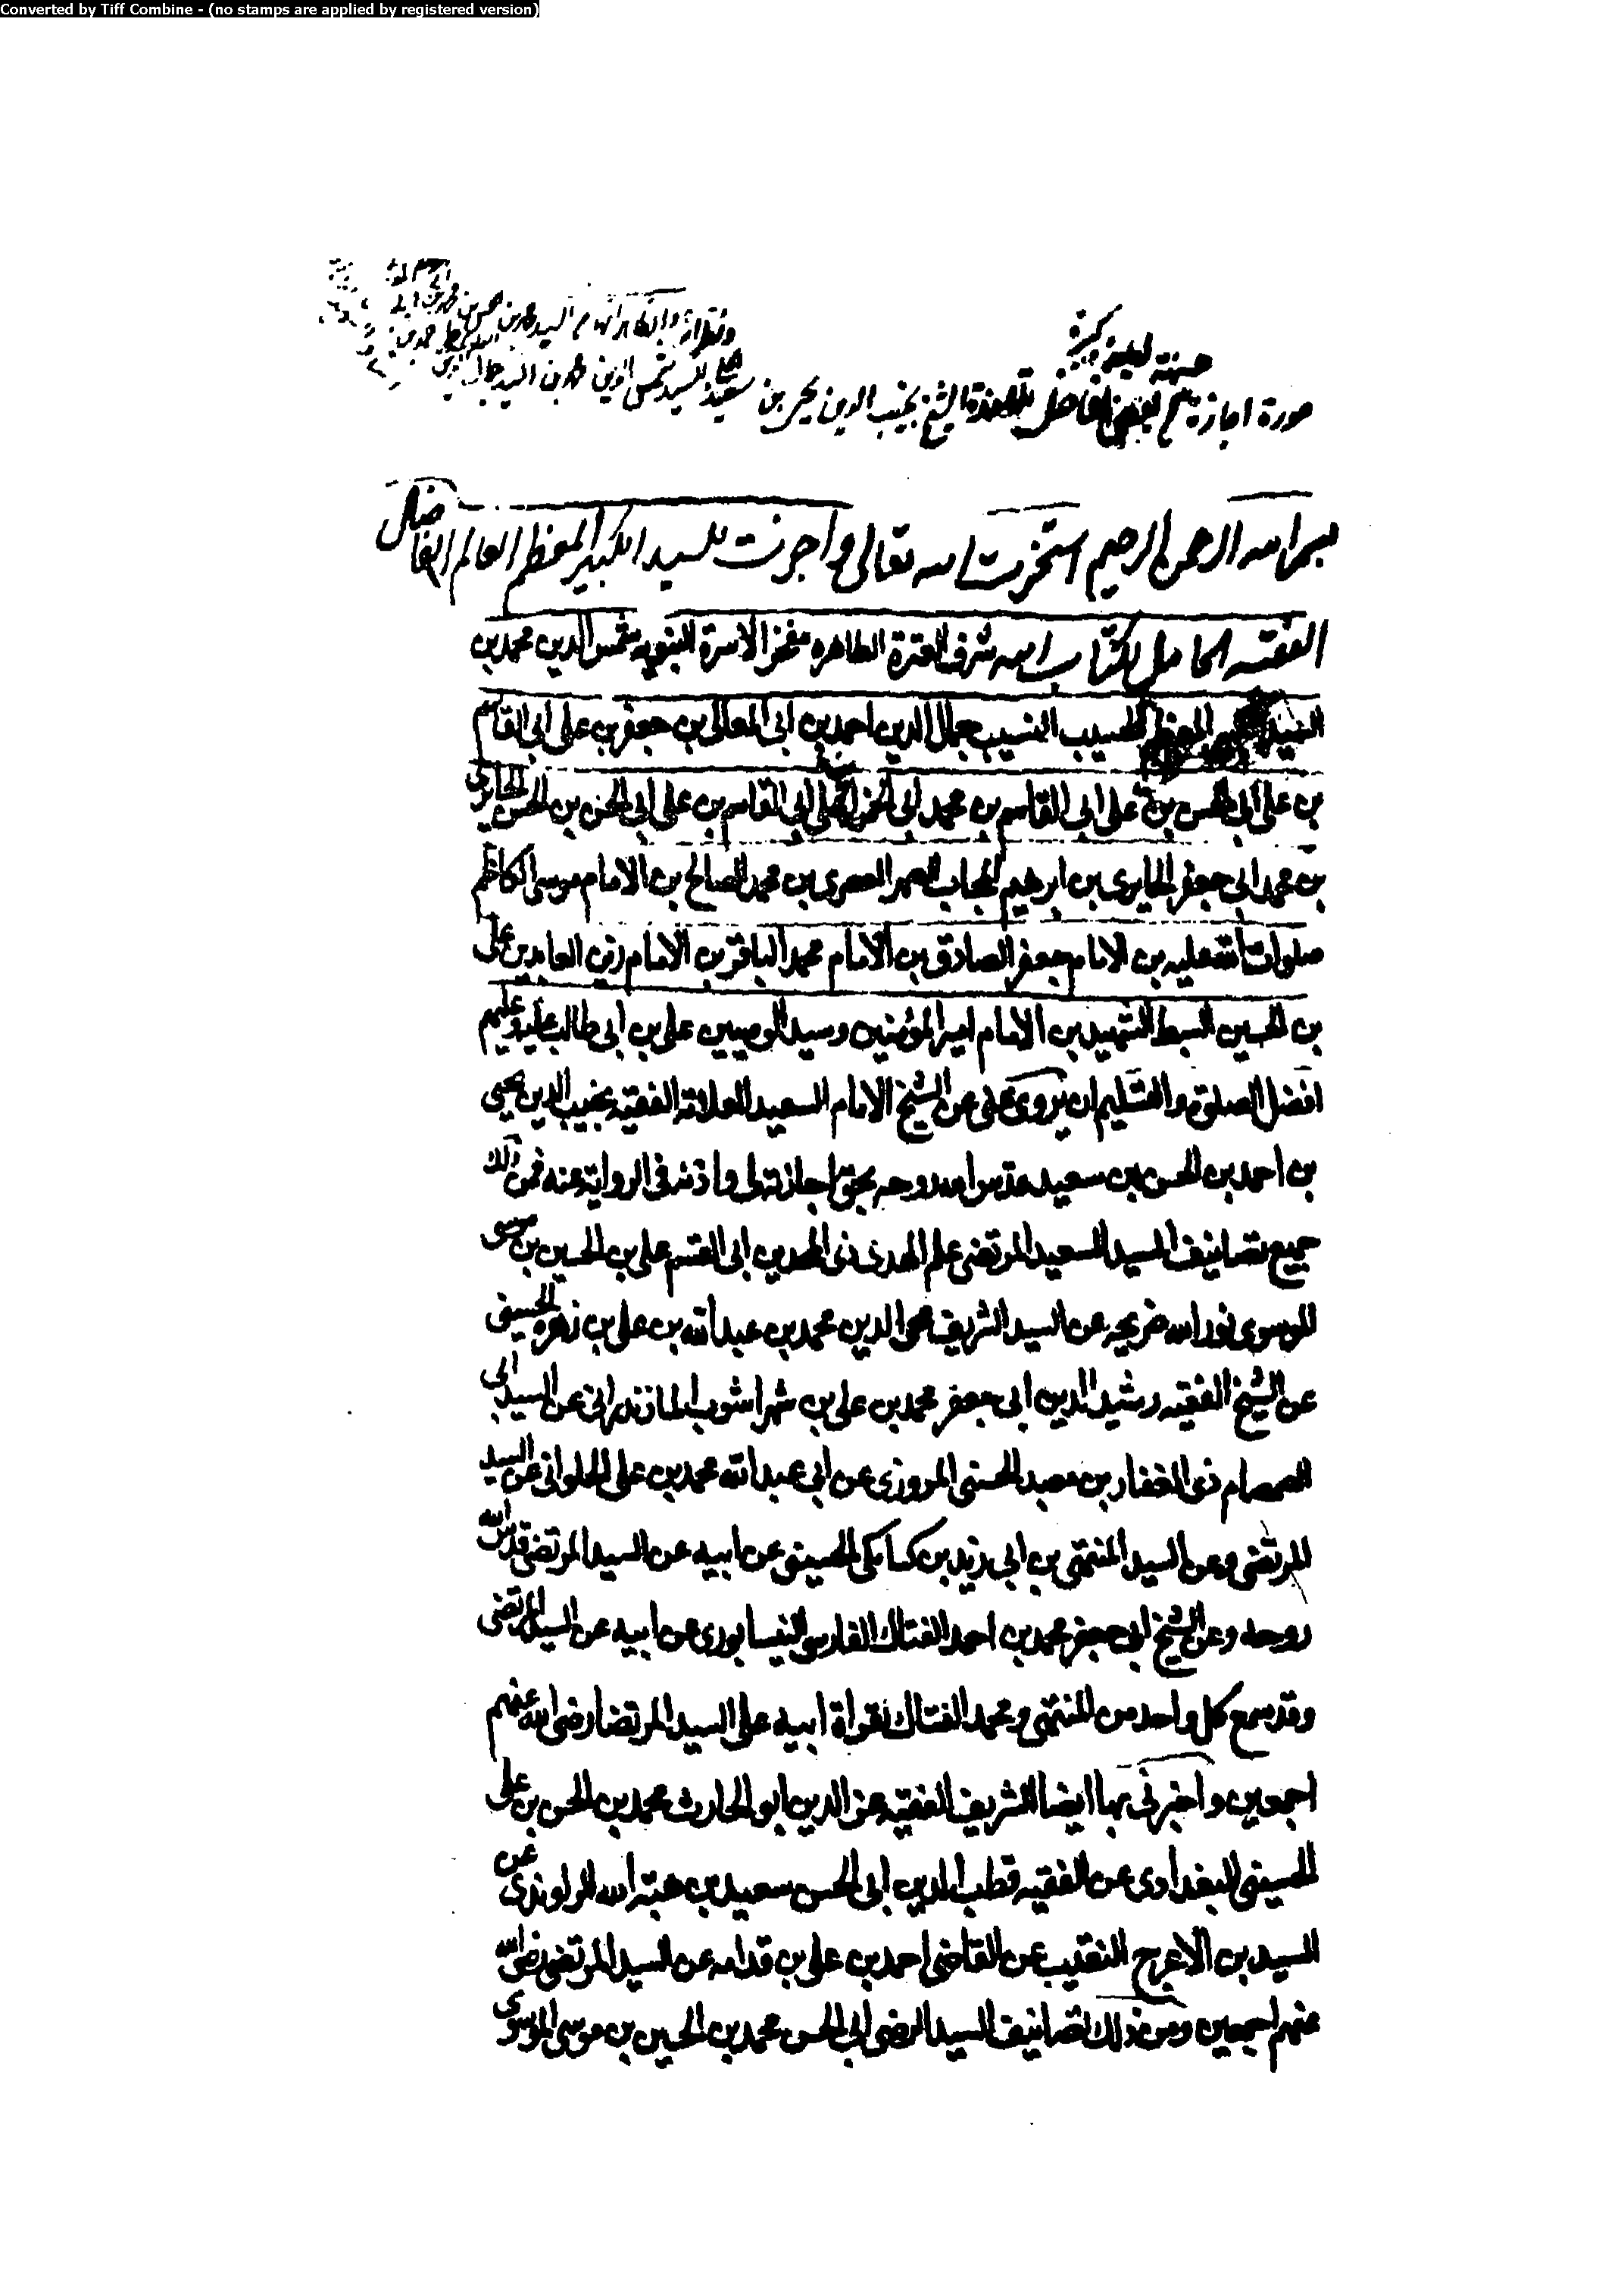 Converted by Tiff Combine - (no stamps are applied by registered version)
حسنة كبيرة
صورة اجازة بعض افاضل تلامذة الشيخ نجيب الدين يحيى بن سعيد للسيد شمس الدين محمد بن السيد جمال الدين
بسم الله الرحمن الرحيم استخرت الله تعالى واجزت للسيد الكبير المعظم العالم الفاضل
الفقيه الحامل لكتاب الله شرف العترة الطاهره مفخر الاسرة النبويه شمس الدين محمد بن
السيد المعظم الحسيب النسيب جمال الدين احمد بن ابى المعالى بن جعفر بن على ابى القاسم
بن على ابى الحسن بن على ابى القاسم بن محمد ابى القاسم بن على ابى الحسن بن الحسن الحايرى
بن محمد ابى جعفر الحايرى بن ابرهيم المجاب الصهر العمرى بن محمد الصالح بن الامام موسى الكاظم
صلوات الله عليه بن الامام جعفر الصادق بن الامام محمد الباقر بن الامام زين العابدين على
بن الحسين السبط الشهيد بن الامام امير المؤمنين وسيد الوصيين على بن ابى طالب عليه وعليهم
افضل الصلوة والتسليم ان يروى عنى عن الشيخ الامام السعيد العلامة الفقيه نجيب الدين يحيى
بن احمد بن الحسن بن سعيد قدس الله روحه بحق اجازته لى واذنه فى الرواية عنه فمن ذلك
جميع تصانيف السيد السعيد المرتضى علم الهدى ذى المجدين ابى القسم على بن الحسين بن موسى
الموسوى نور الله ضريحه عن السيد الشريف محى الدين محمد بن عبد الله بن على بن زهره الحسينى
عن الشيخ الفقيه رشيد الدين ابى جعفر محمد بن على بن شهراشوب المازندرانى عن السيد ابى
الصمصام ذى الفقار بن معبد الحسنى المروزى عن ابى عبد الله محمد بن على الحلوانى عن السيد
المرتضى وعن السيد المنتهى بن ابى زيد بن كيابكى الحسينى عن ابيه عن السيد المرتضى قدس الله
روحه وعن الشيخ ابى جعفر محمد بن احمد الفتال الفارسى النيسابورى عن ابيه عن السيد المرتضى
وقد سمع كل واحد من المنتهى ومحمد الفتال بقراة ابيه على السيد المرتضا رضى الله عنهم
اجمعين واخبرنى بها ايضا الشريف الفقيه عز الدين ابو الحارث محمد بن الحسن بن على
الحسينى البغدادى عن الفقيه قطب الدين ابى الحسن سعيد بن هبة الله الراوندى عن
السيد بن الاعرج النقيب عن القاضى احمد بن على بن قدامه عن السيد المرتضى رضى الله
عنهم اجمعين ومن ذلك تصانيف السيد الرضى ابى الحسن محمد بن الحسين بن موسى الموسوى